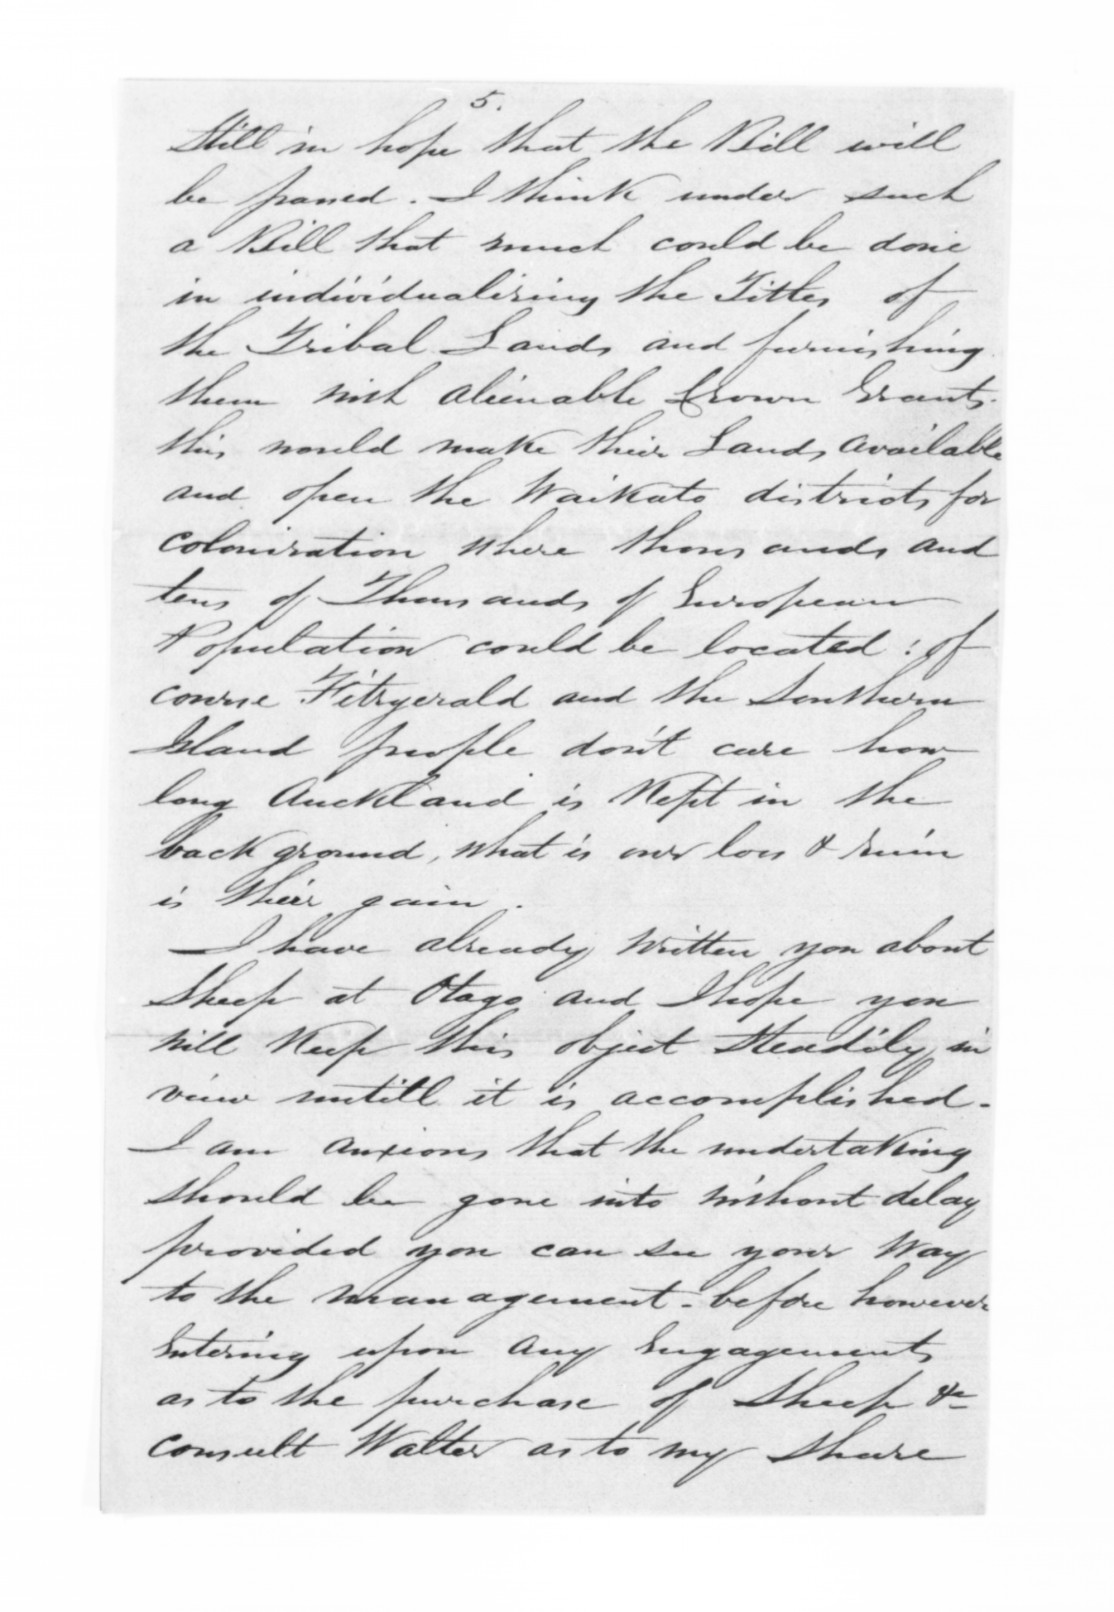 5.
Still in hope that the Bill will
be passed. I think under such
a Bill that much could be done
in individualising the Titles of
the Tribal Lands and furnishing
them with alienable Crown Grants.
this would make their Lands available
and open the Waikato districts for
colonisation where thousands and
tens of Thousands of European
Population could be located: of
course Fitzgerald and the Southern
Island people don't care how
long Auckland is Kept in the
back ground, what is our loss & ruin
is their gain.
I have already written you about
Sheep at Otago and I hope you
will Keep this object Steadily in
view untill it is accomplished.
I am anxious that the undertaking
should be gone into without delay
provided you can see your Way
to the management. before however
Entering upon any Engagements
as to the purchase of Sheep &c
consult Walter as to my Share